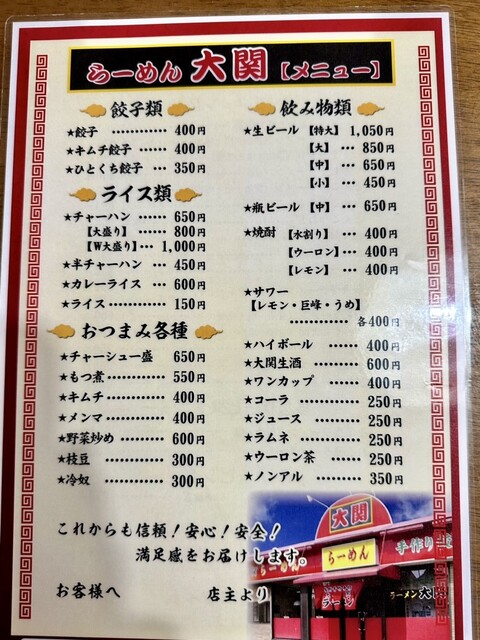 らーめん 大関【メニュー】
餃子類
★餃子 ………… 400円
★キムチ餃子 …… 400円
★ひとくち餃子 … 350円
ライス類
★チャーハン …… 650円
【大盛り】…… 800円
【W大盛り】… 1,000円
★半チャーハン … 450円
★カレーライス … 600円
★ライス………… 150円
おつまみ各種
★チャーシュー盛 650円
★もつ煮………… 550円
★キムチ………… 400円
★メンマ………… 400円
★野菜炒め……… 600円
★枝豆…………… 300円
★冷奴…………… 300円
飲み物類
★生ビール【特大】1,050円
【大】… 850円
【中】… 650円
【小】… 450円
★瓶ビール【中】… 650円
★焼酎【水割り】… 400円
【ウーロン】… 400円
【レモン】… 400円
★サワー
【レモン・巨峰・うめ】
………… 各400円
★ハイボール …… 400円
★大関生酒 ……… 600円
★ワンカップ …… 400円
★コーラ ………… 250円
★ジュース ……… 250円
★ラムネ ………… 250円
★ウーロン茶 …… 250円
★ノンアル ……… 350円
これからも信頼!安心!安全!
満足感をお届けします。
お客様へ 店主より
大関
らーめん
手作り
ラーメン
ラーメン 大関